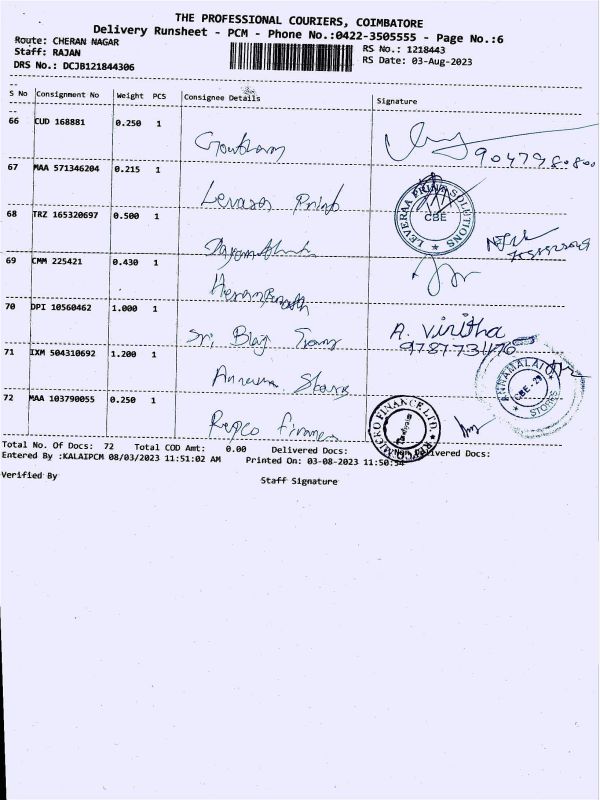 THE PROFESSIONAL COURIERS, COIMBATORE
Delivery Runsheet - PCM - Phone No.:0422-3505555 - Page No.:6
Route: CHERAN NAGAR
RS No.: 1218443
Staff: RAJAN
RS Date: 03-Aug-2023
DRS No.: DCJB121844306
S No Consignment No Weight PCS Consignee Details Signature
66 CUD 168881 0.250 1 Goutham
67 MAA 571346204 0.215 1 Print
LEVERAA PRINT SOLUTIONS CBE
68 TRZ 165320697 0.500 1
69 CMM 225421 0.430 1
70 DPI 10560462 1.000 1 Sri A. Viritha
71 IXM 504310692 1.200 1 Stores
ANNAMALAI STORES CBE - 29
72 MAA 103790055 0.250 1 Repco Finance
REPCO MICRO FINANCE LTD
Total No. Of Docs: 72 Total COD Amt: 0.00 Delivered Docs: Delivered Docs:
Entered By :KALAIPCM 08/03/2023 11:51:02 AM Printed On: 03-08-2023 11:50:54
Verified By Staff Signature